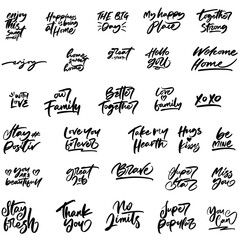 enjoy this sweet
Happiness is being at Home
THE BIG Day
My happy Place
together Strong
enjoy
home sweet home
great
Hello you
Welcome Home
with LOVE
our Family
Better Together
Love Family
XOXO
Stay Positiv
Love you Forever
Take my Hearth
Hugs Kisses
be Mine
You are beautiful
great Job
Brave
Super Star
Miss You
Stay fresh
Thank You
No Limits
Super Popular
You Can